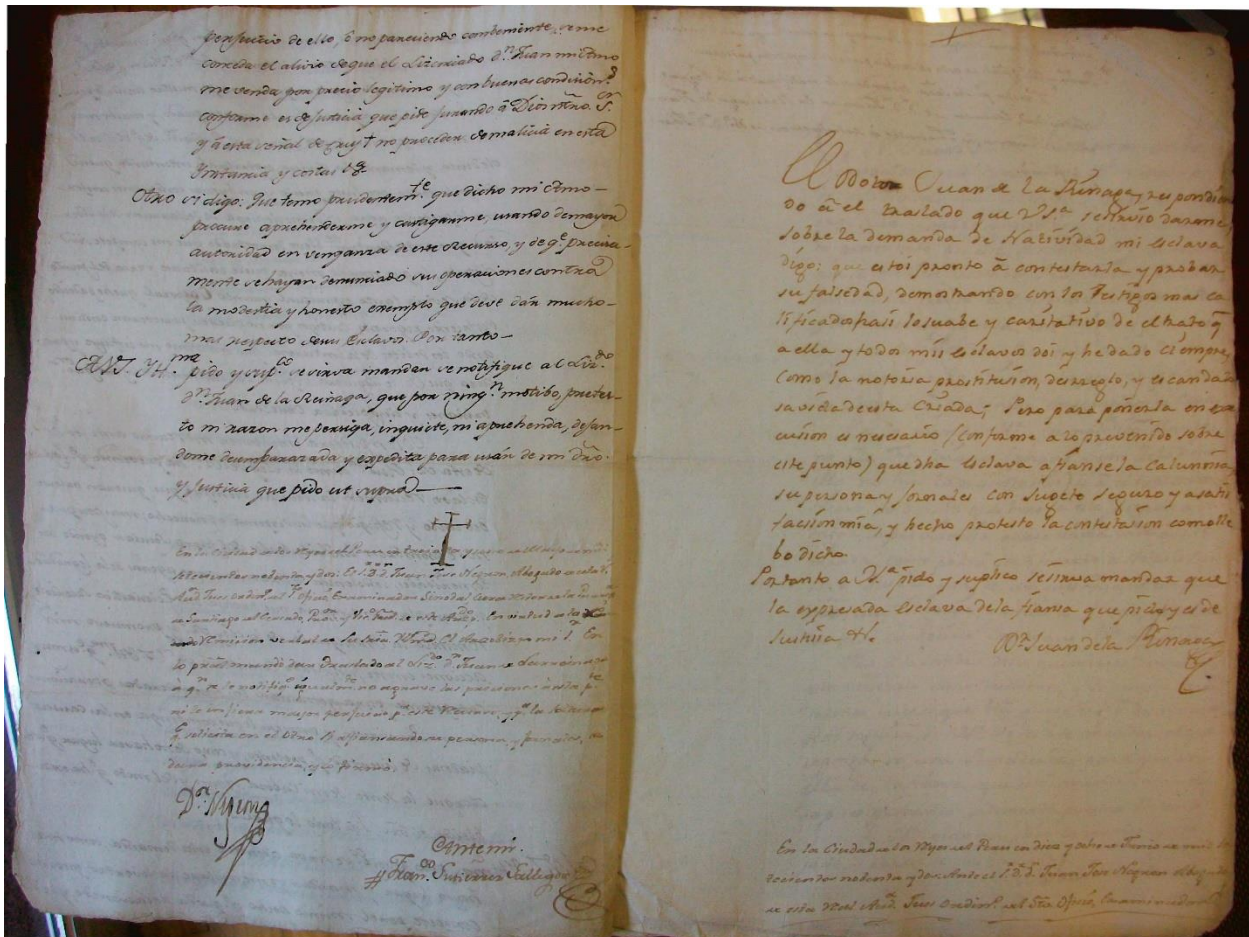 perjuicio de ello, ó no pareciendo combeniente, se me
conceda el alivio de que el Lizenciado dn. Juan mi amo
me venda por precio legitimo y con buenas condicions.
conforme es de justicia que pido jurando á Dios ntro. S.
y á esta señal de cruz + no proceder de malicia en esta
Ynstancia y costas &a.
Otro si digo: Que temo prudentemte. que dicho mi amo
procure aprehenderme y castigarme, usando de mayor
autoridad en venganza de este Recurso, y de qe. precisa-
mente se hayan denunciado sus operaciones contra
la modestia y honesto exemplo que deve dar mucho
mas respecto de sus Esclavos. Por tanto
A VS. Yllma. pido y supco. se sirva mandar se notifique al Lizdo.
dn. Juan de la Reinaga, que por ningn. motibo, pretex-
to ni razon me persiga, inquiete, ni aprehenda, dejan-
dome desembarazada y expedita para usar de mi dro.
y Justicia que pido ut supra
En la Ciudad de los Reyes del Peru en treinta y uno de Mayo de mil
setecientos nobenta y dos. El S. D. D. Juan José Negron, Abogado de esta Rl.
Auda. Juez ordino. del So. Oficio Examinador Sinodal
de Santiago del Cercado, Prov. y Vico. Genl. de este Arzdo. En virtud de la
Remision verbal de Su Sria. Yllma. El Arzobispo mi S. En
lo pral. mandó dar Traslado al Lizdo. dn. Juan de la Reinaga
á qn. se le notifiqe. igualmte. no agrave las prisiones á esta pte.
ni le infiera mayor perjuicio pr. este Recurso, y qe. la soltura
qe. solicita en el Otro si afianzando su persona, y jornales, se
dara providencia, y lo firmó
Dor. Negron
Ante mi.
Franco. Gutierrez Gallegos
El Doctor Juan de la Rinaga, respondien
do á el traslado que VSa. se sirvio darme,
sobre la demanda de Natividad mi esclava
digo: que estoi pronto á contestarla y probar
su falsedad, demostrando con los Testigos mas ca
lificados, asi lo suabe y caritativo de el trato q
a ella y todos mis esclavos doi y he dado siempre,
como la notoria prostitusion, desreglo, y escandalo
sa vida de esta Criada; Pero para ponerla en exe
cusion es necesario (conforme a lo prevenido sobre
este punto) que dha esclava afianse la calumnia,
su persona y jornales con sugeto seguro y a satis
facsion mia, y hecho protesto la contestasion como lle
bo dicho.
Portanto a Va. pido y suplico se sirva mandar que
la expresada esclava de la fiansa que pido, y es de
Justisia &.
Dr. Juan de la Rinaga
En la Ciudad de los Reyes del Peru en dies y ocho de Junio de mil se
tecientos nobenta y dos. Ante el S. D. D. Juan José Negron Abogado
de esta Real Auda. Juez Ordino. del Sto. Oficio, Examinador